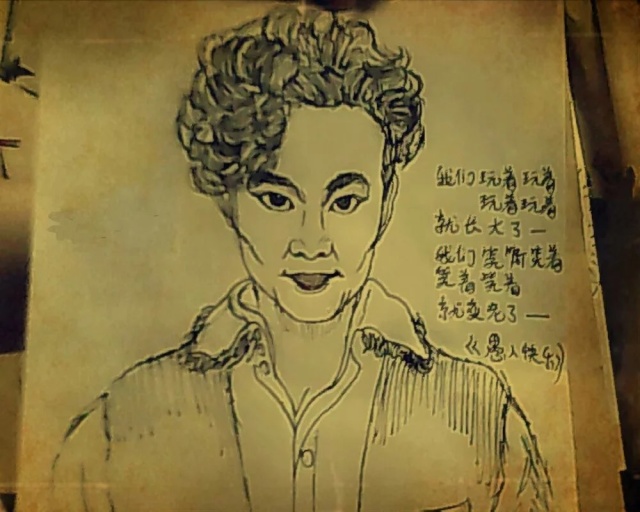 我们玩着玩着
玩着玩着
就长大了一
我们笑着笑着
笑着笑着
就变老了一
《愚人快乐》